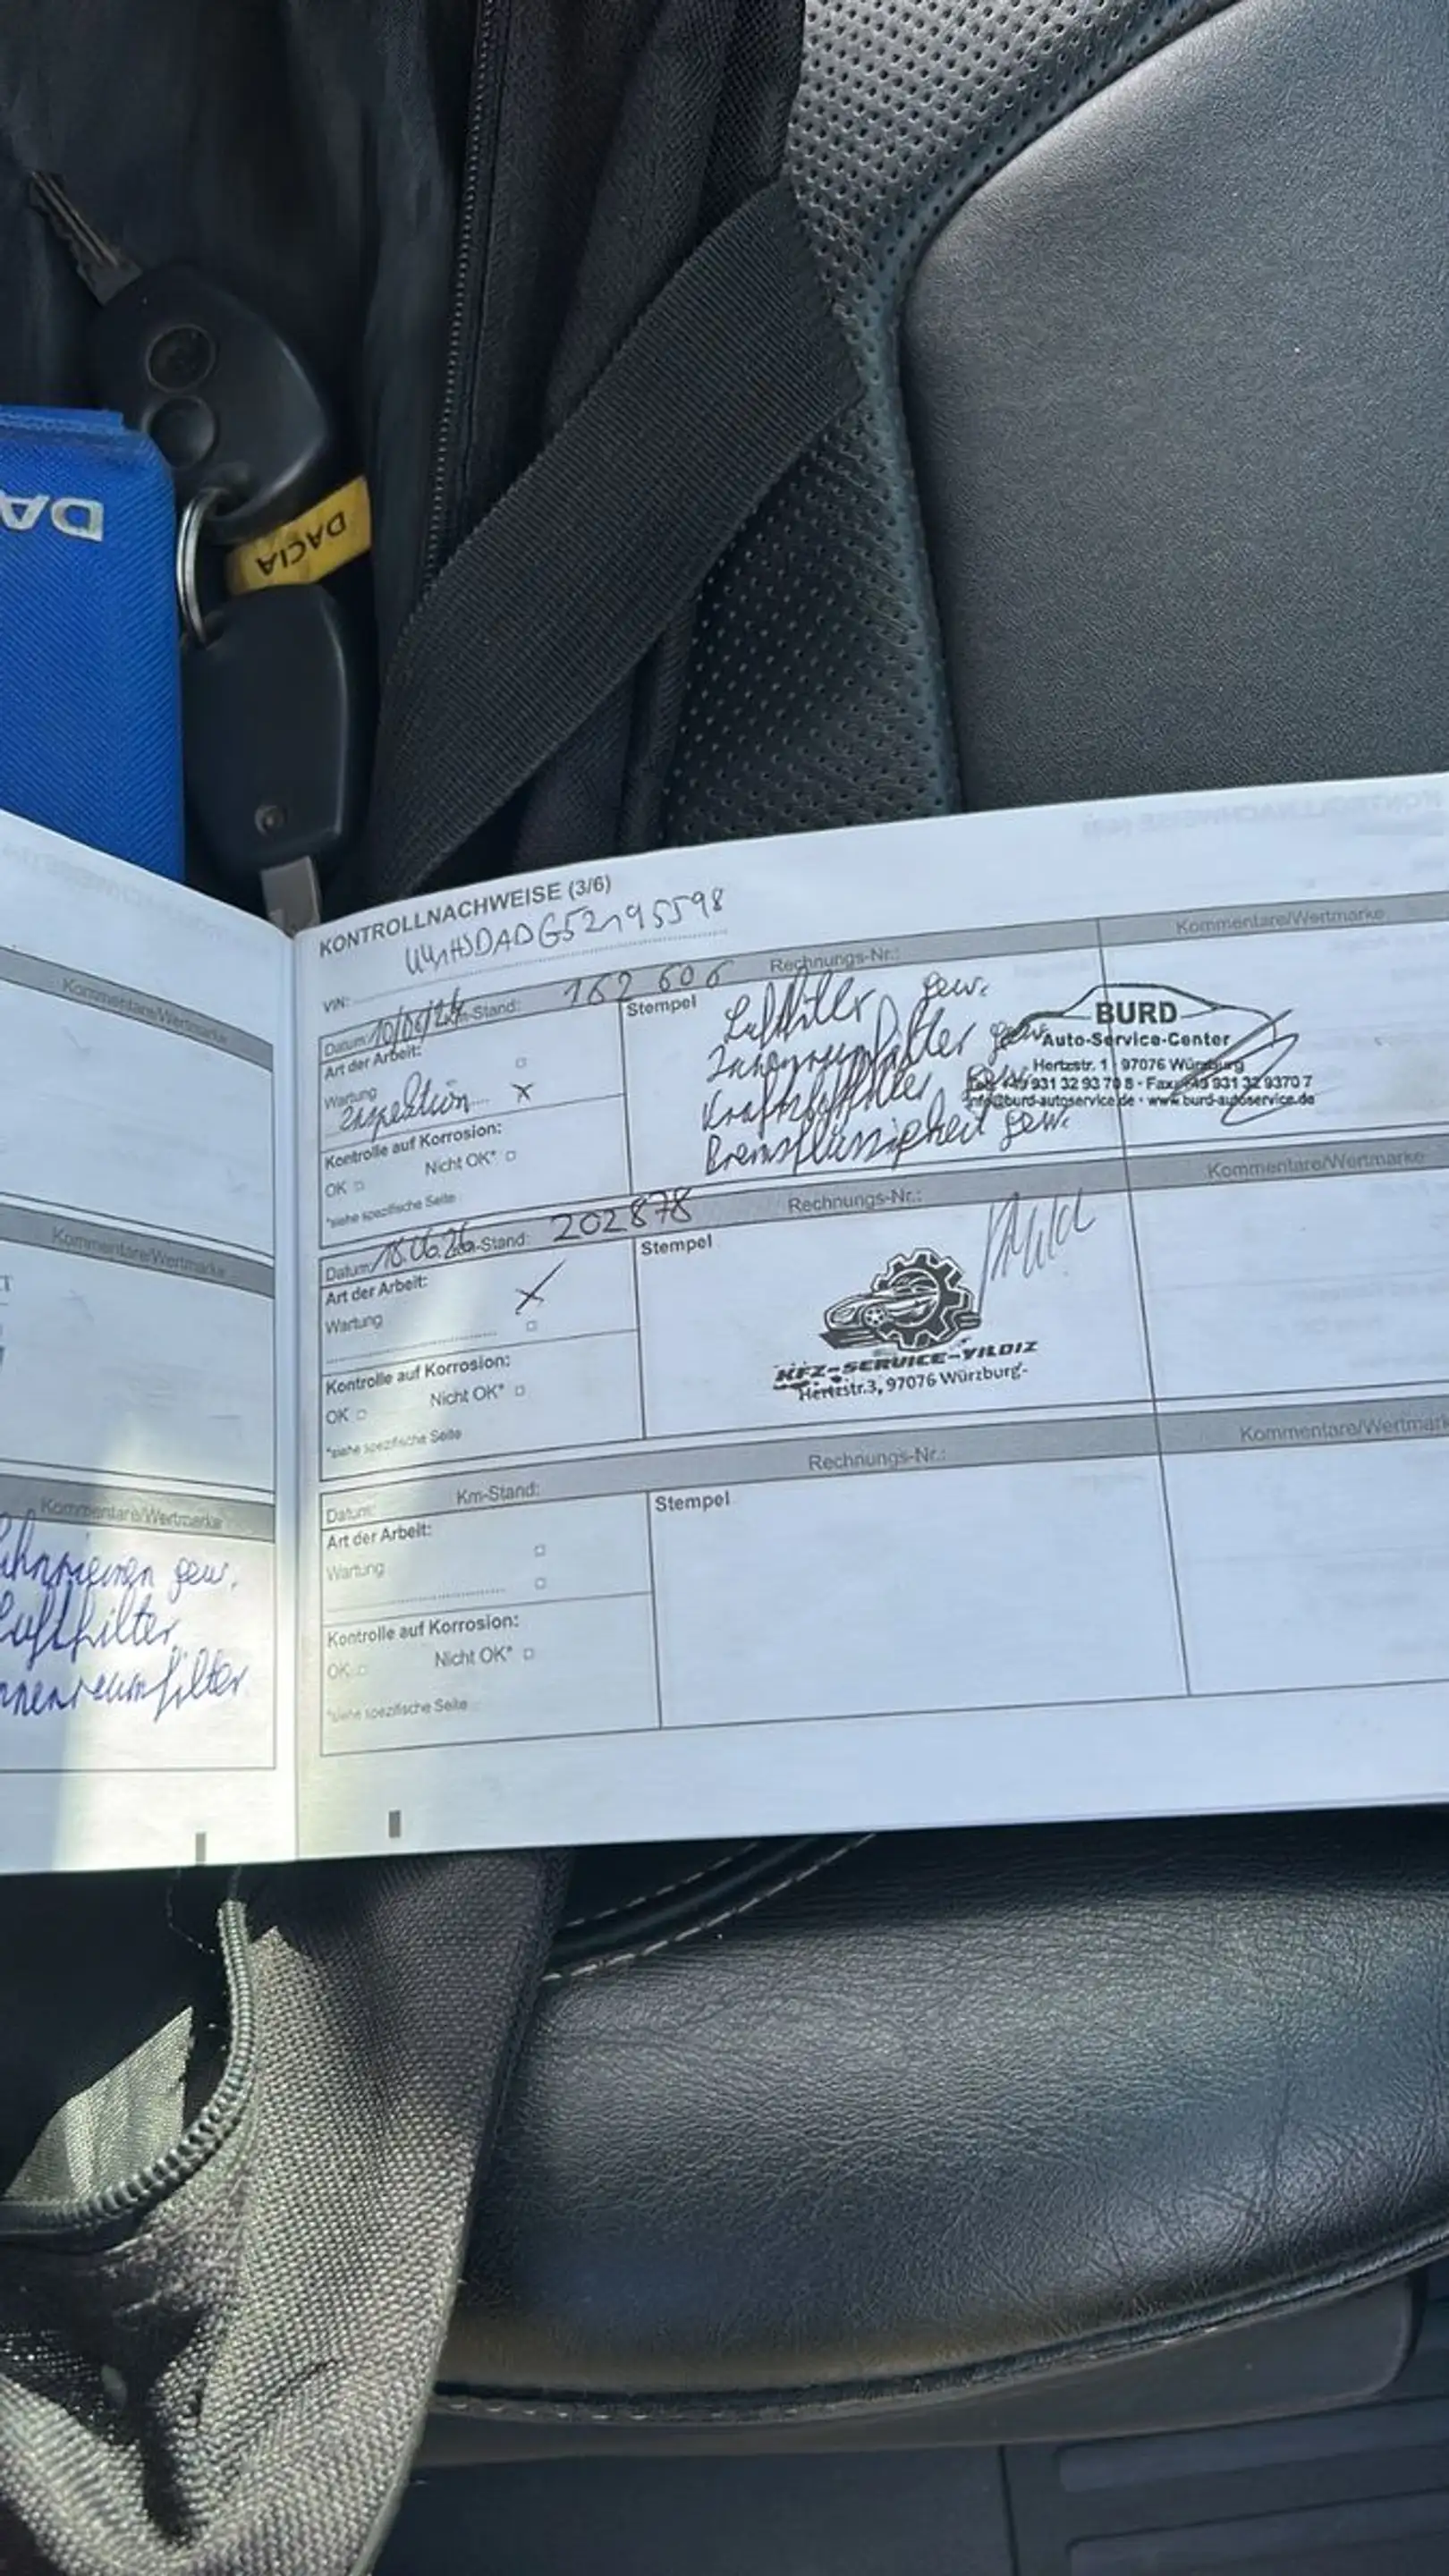 DA
DACIA
Kommentare/Wertmarke
Kommentare/Wertmarke
Kommentare/Wertmarke
gew.
Luftfilter
nnenraumfilter
KONTROLLNACHWEISE (3/6)
VIN: UU1HSDADG52195598
Datum: 10/06/24 Km-Stand: 162 606 Rechnungs-Nr.: Kommentare/Wertmarke
Art der Arbeit:
Wartung
Inspektion
Kontrolle auf Korrosion:
OK Nicht OK*
*siehe spezifische Seite
Stempel
Luftfilter gew.
Innenraumfilter gew.
Kraftstofffilter gew.
Bremsflüssigkeit gew.
BURD
Auto-Service-Center
Hertzstr. 1 · 97076 Würzburg
Tel. +49 931 32 93 70 8 · Fax: +49 931 32 9370 7
info@burd-autoservice.de · www.burd-autoservice.de
Datum: 18.06.26 Km-Stand: 202878 Rechnungs-Nr.: Kommentare/Wertmarke
Art der Arbeit:
Wartung
Kontrolle auf Korrosion:
OK Nicht OK*
*siehe spezifische Seite
Stempel
KFZ-SERVICE-YILDIZ
Hertzstr.3, 97076 Würzburg
Datum: Km-Stand: Rechnungs-Nr.: Kommentare/Wertmarke
Art der Arbeit:
Wartung
Kontrolle auf Korrosion:
OK Nicht OK*
*siehe spezifische Seite
Stempel